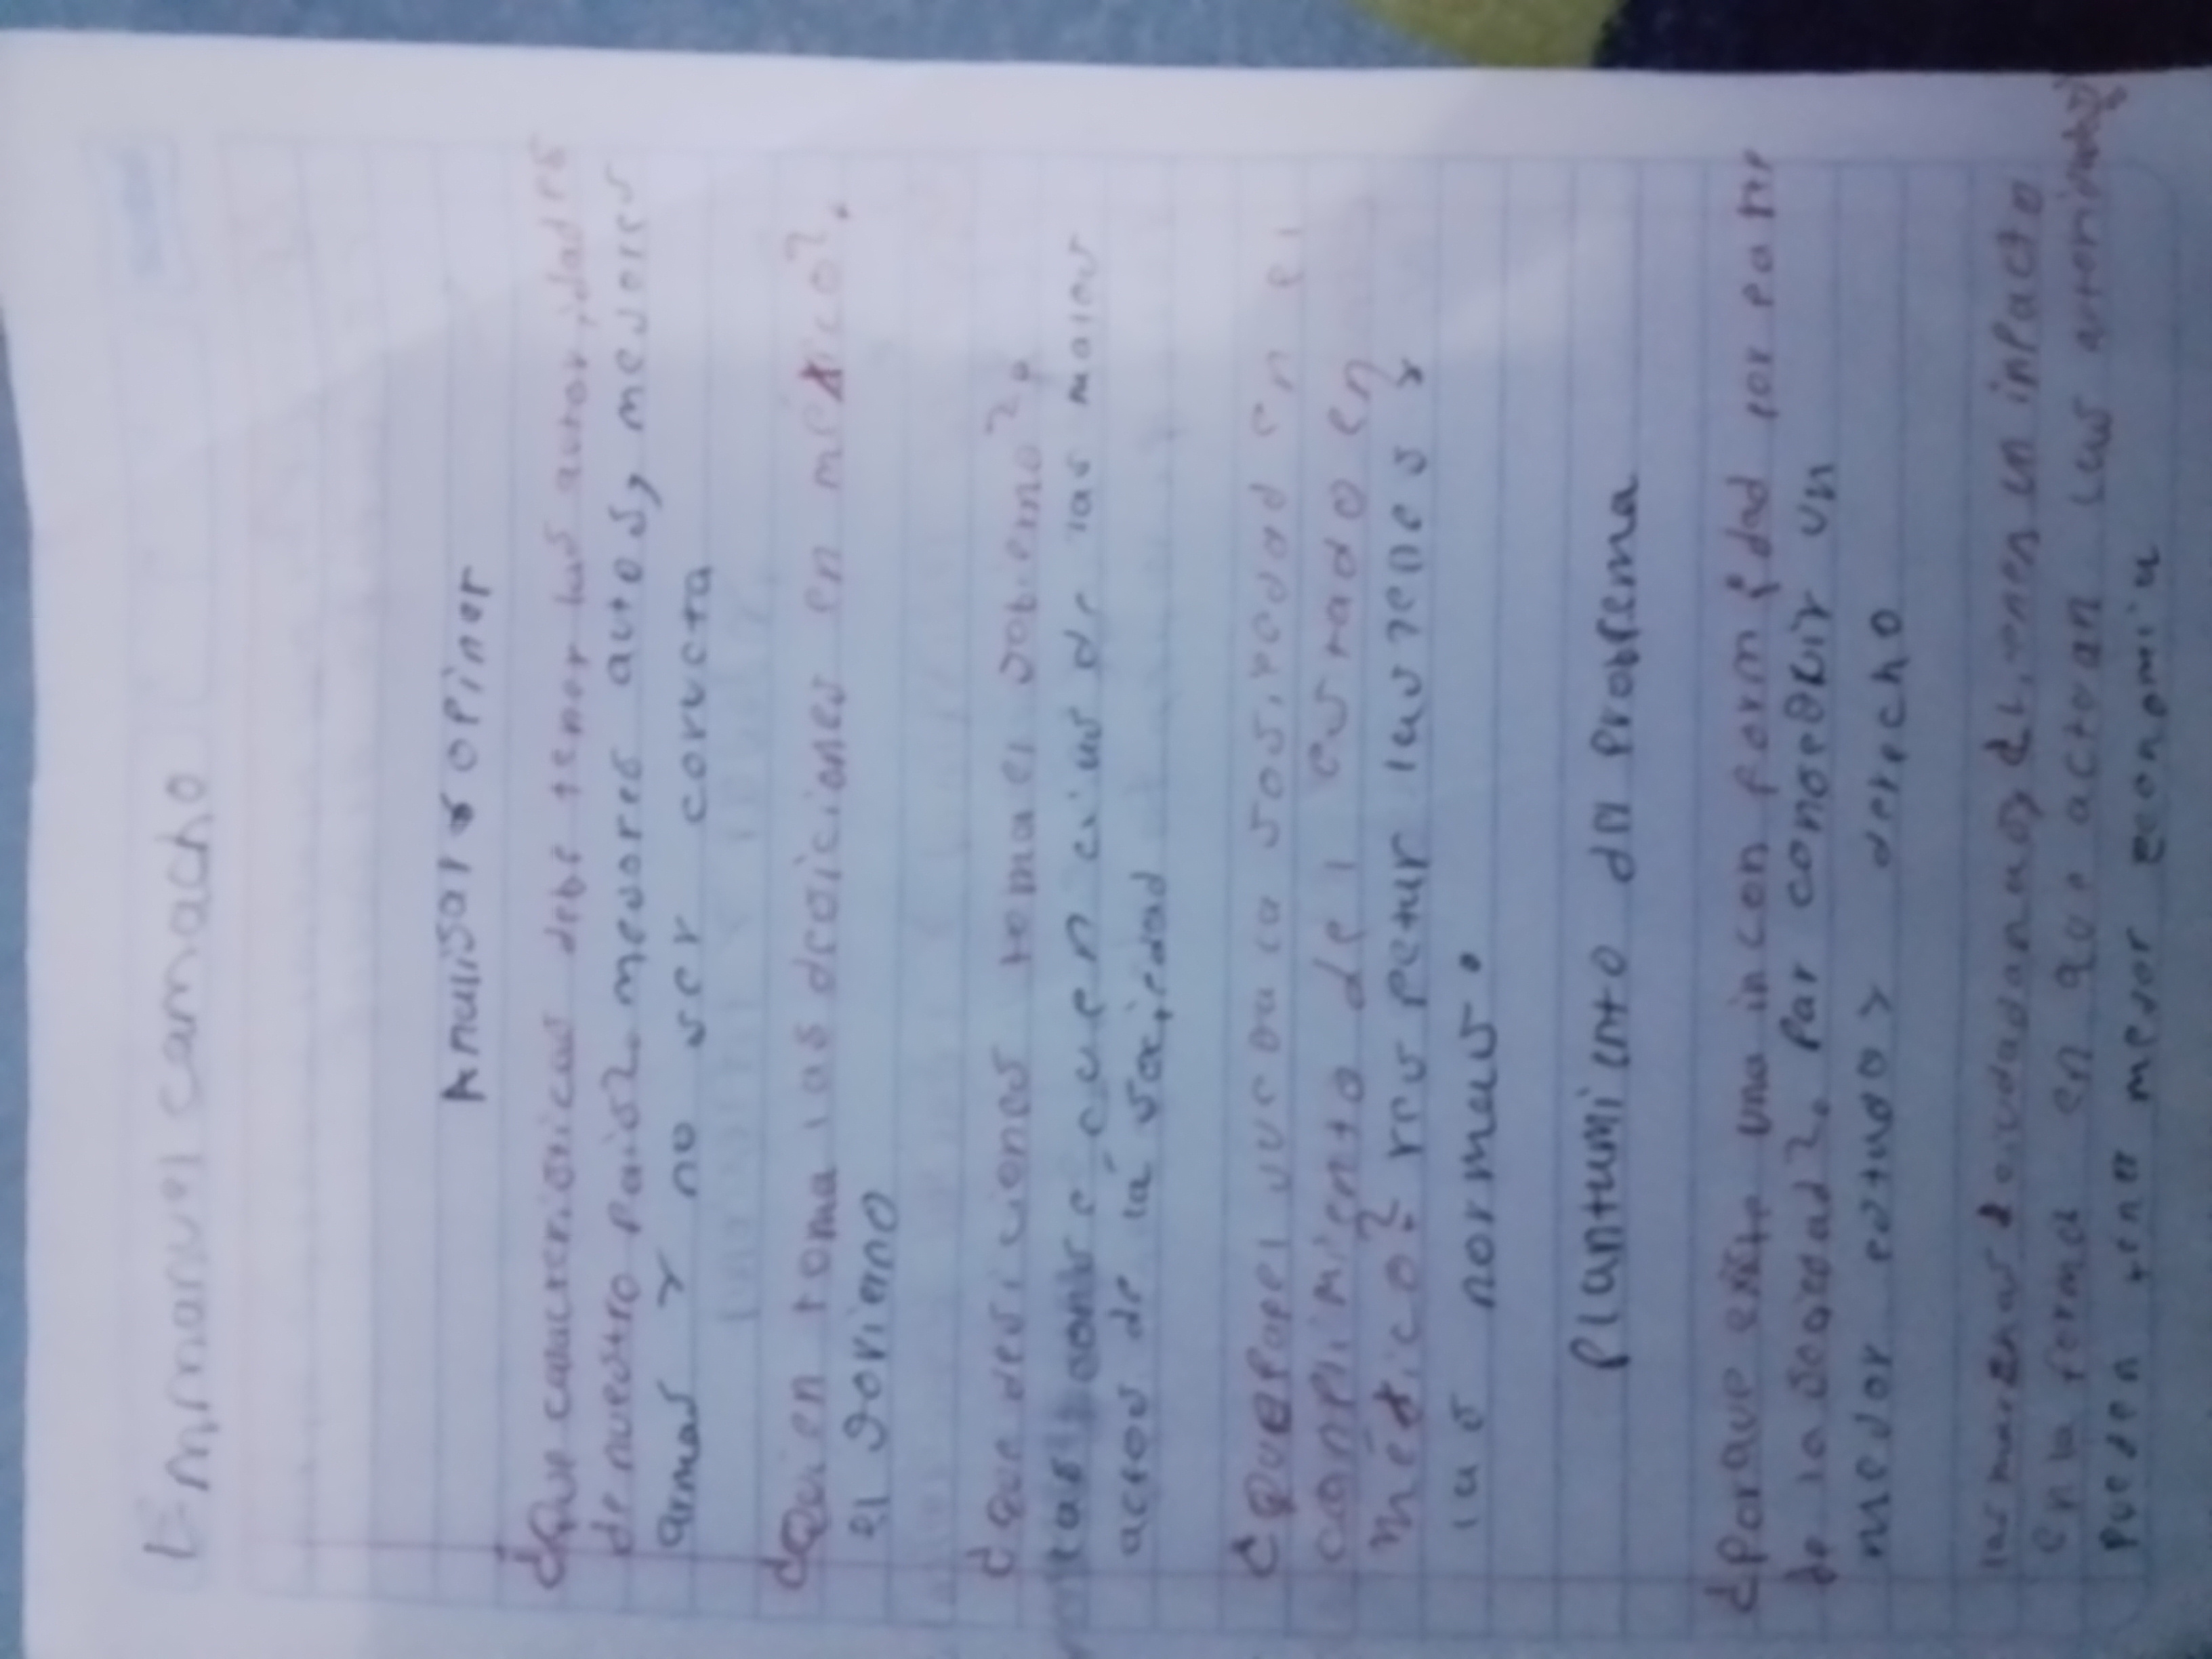 Emmanuel camacho
Analisar y opinar
¿Que caracteristicas debe tener las autoridades
de nuestro pais? mejores autos, mejores
armas y no ser corructa
¿Quien toma las deciciones en mexico?.
el gorierno
¿que desiciones toma el gobierno?.
las consecuencias de las malas
actos de la sociedad
¿Que papel juega la sosiedad en el
complimiento del estado en
mexico? respetar las leyes y
las normas.
Plantamiento del problema
¿Porque existe una inconformidad por parte
de la sociedad?. Par conseguir un
mejor estado y derecho
las marchas ciudadanas, tienen un inpacto
en la forma en que actuan las autoridades?
pueden tener mejor economia